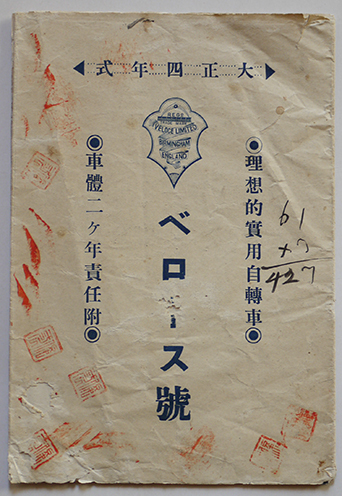 大正四年式
REGD
TRADE MARK
VELOCE LIMITED
BIRMINGHAM
ENGLAND
●理想的實用自轉車●
ベロース號
●車體二ヶ年責任附●
61
×7
427